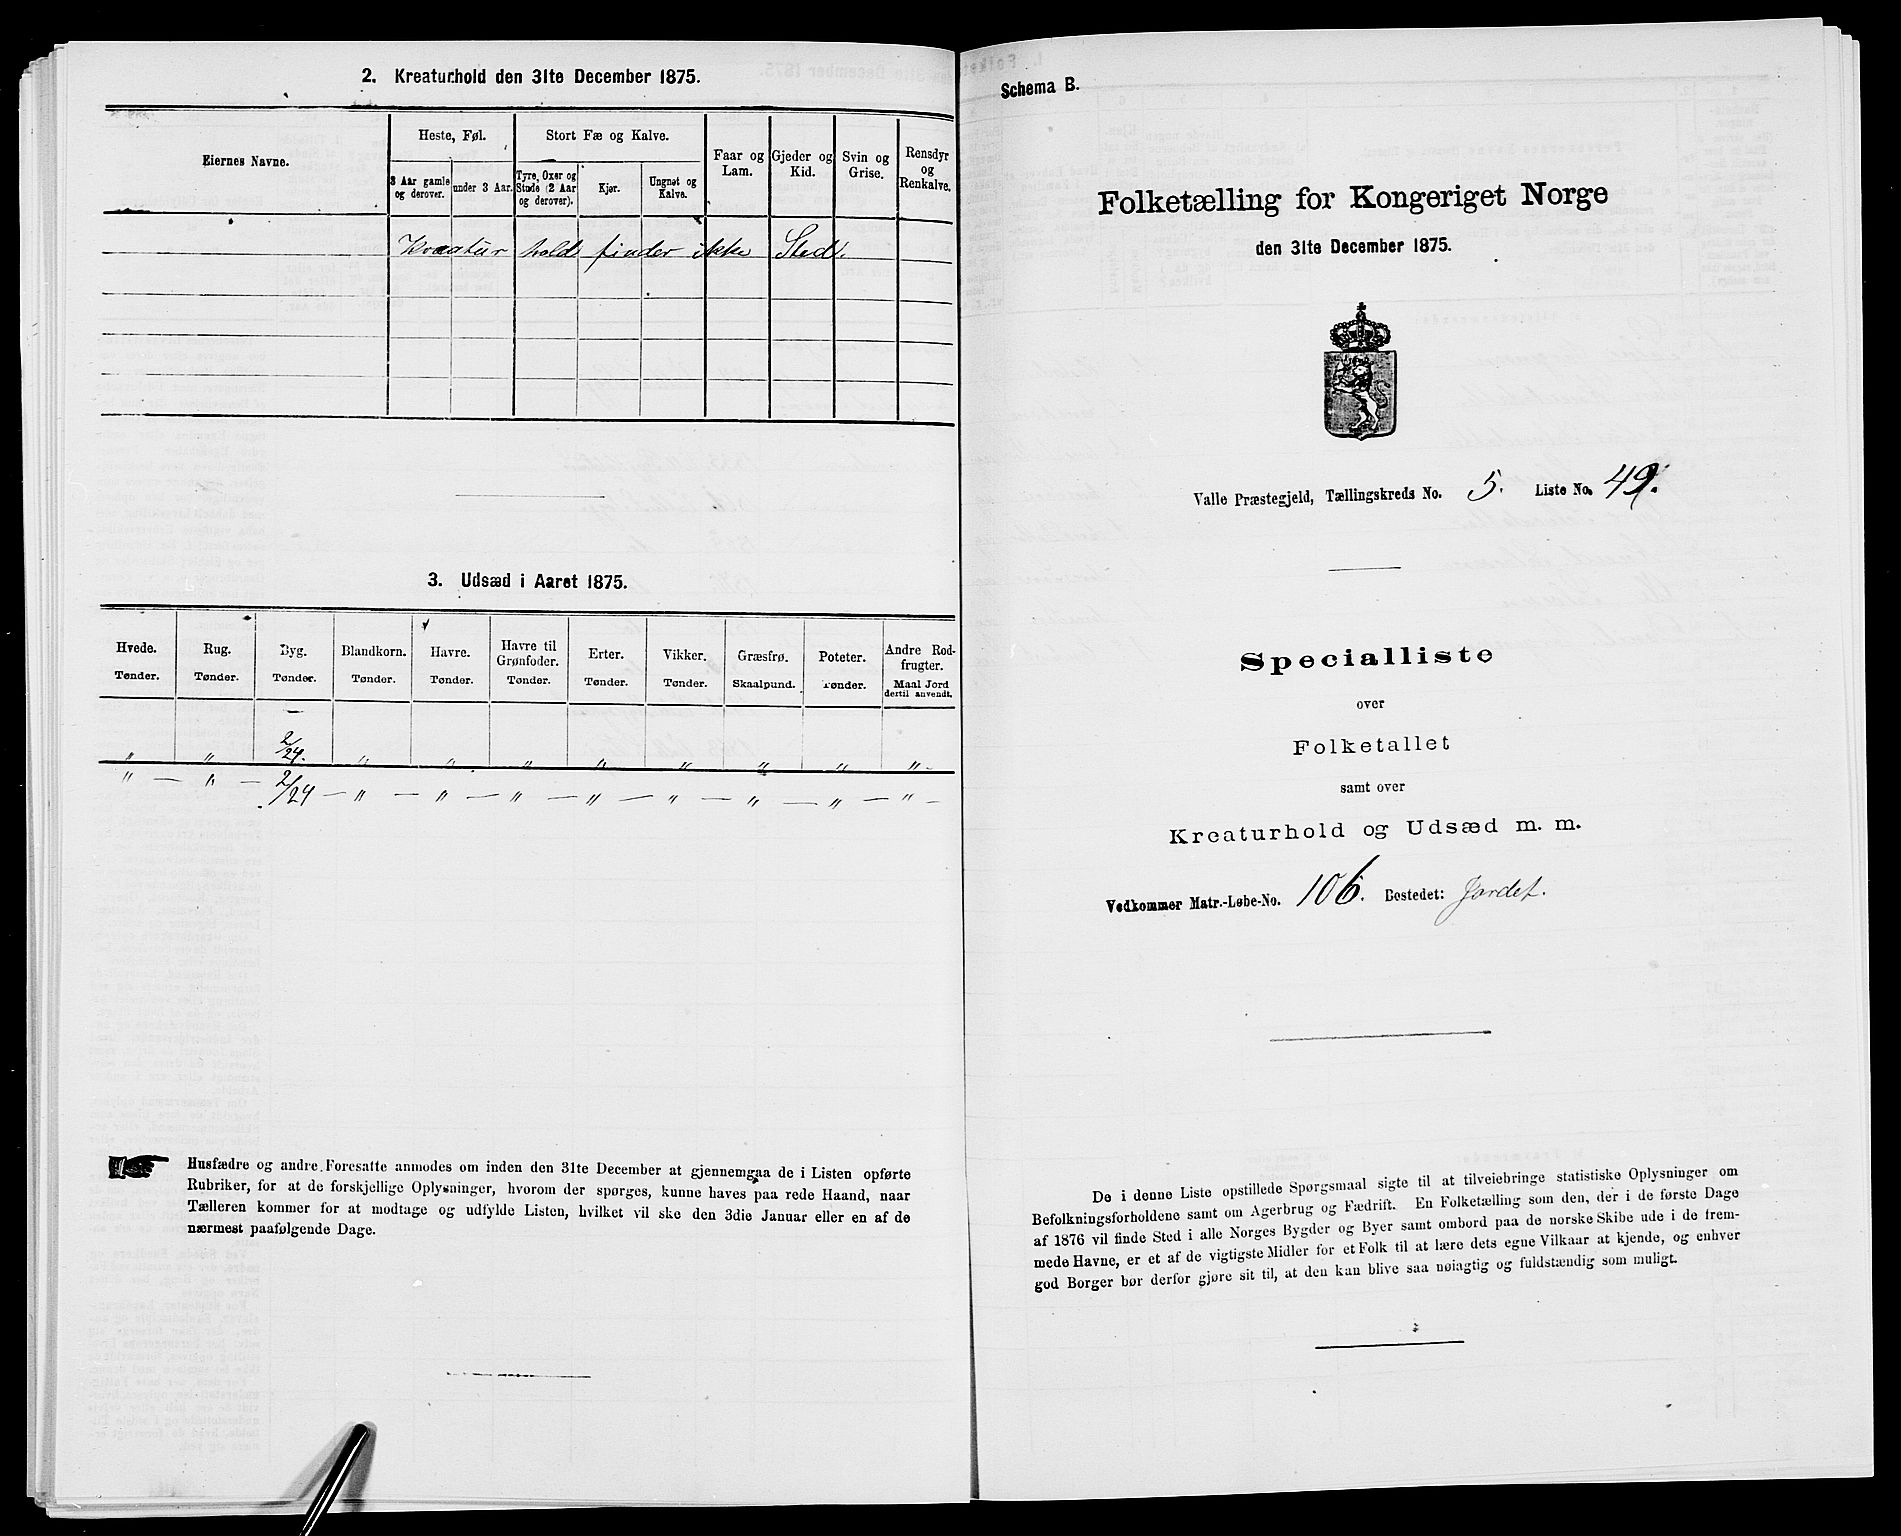 2. Kreaturhold den 31te December 1875.
Eiernes Navne.
Heste, Føl.
3 Aar gamle og derover.
under 3 Aar.
Stort Fæ og Kalve.
Tyre, Oxer og Stude (2 Aar og derover).
Kjør.
Ungnøt og Kalve.
Faar og Lam.
Gjeder og Kid.
Svin og Grise.
Rensdyr og Renkalve.
Kreatur hold finder ikke Sted.
3. Udsæd i Aaret 1875.
Hvede. Rug. Byg. Blandkorn. Havre. Havre til Grønfoder. Erter. Vikker. Græsfrø. Poteter. Andre Rodfrugter.
Tønder. Tønder. Tønder. Tønder. Tønder. Tønder. Tønder. Tønder. Skaalpund. Tønder. Maal Jord dertil anvendt.
" " 2/24. " " " " " " " "
" — " — 2/24 — " — " — " — " — " — " — " — " —
Husfædre og andre Foresatte anmodes om inden den 31te December at gjennemgaa de i Listen opførte
Rubriker, for at de forskjellige Oplysninger, hvorom der spørges, kunne haves paa rede Haand, naar
Tælleren kommer for at modtage og udfylde Listen, hvilket vil ske den 3die Januar eller en af de
nærmest paafølgende Dage.
Schema B.
Folketælling for Kongeriget Norge
den 31te December 1875.
Valle Præstegjeld, Tællingskreds No. 5. Liste No. 49.
Specialliste
over
Folketallet
samt over
Kreaturhold og Udsæd m. m.
Vedkommer Matr.-Løbe-No. 106. Bostedet: Jordet.
De i denne Liste opstillede Spørgsmaal sigte til at tilveiebringe statistiske Oplysninger om
Befolkningsforholdene samt om Agerbrug og Fædrift. En Folketælling som den, der i de første Dage
af 1876 vil finde Sted i alle Norges Bygder og Byer samt ombord paa de norske Skibe ude i de frem-
mede Havne, er et af de vigtigste Midler for et Folk til at lære dets egne Vilkaar at kjende, og enhver
god Borger bør derfor gjøre sit til, at den kan blive saa nøiagtig og fuldstændig som muligt.